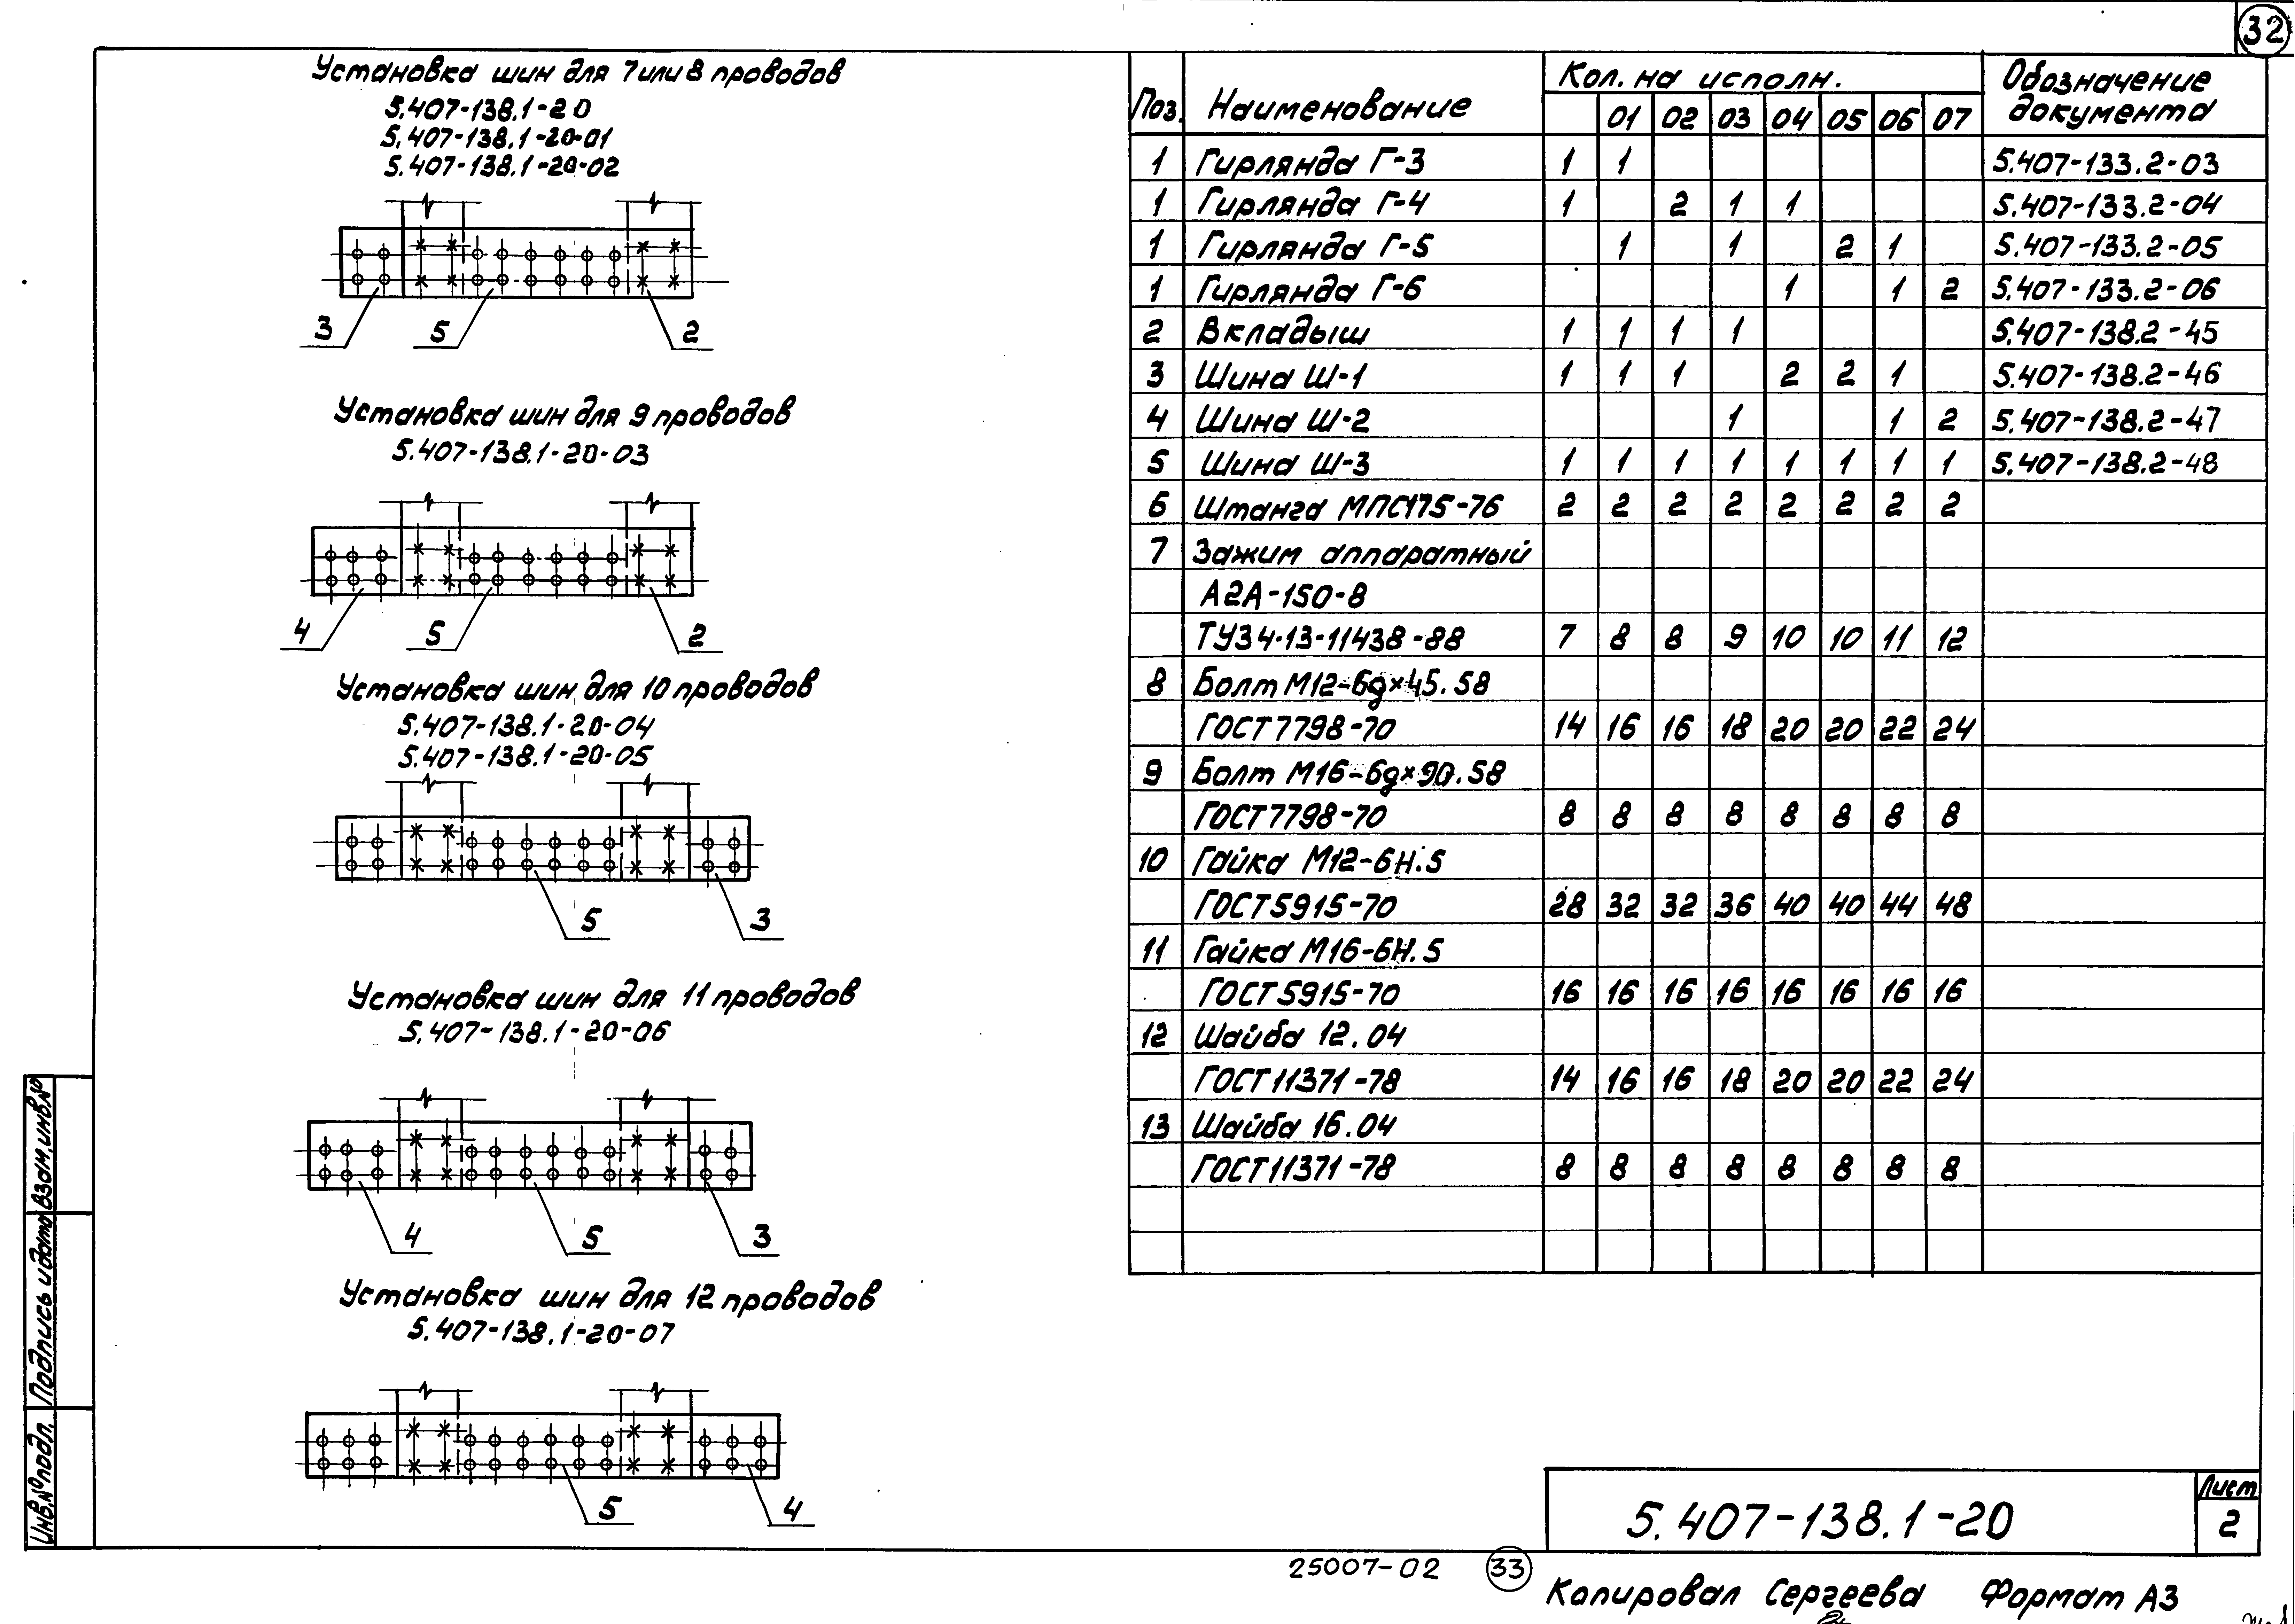 32
Установка шин для 7 или 8 проводов
5.407-138.1-20
5.407-138.1-20-01
5.407-138.1-20-02
3 5 2
Установка шин для 9 проводов
5.407-138.1-20-03
4 5 2
Установка шин для 10 проводов
5.407-138.1-20-04
5.407-138.1-20-05
5 3
Установка шин для 11 проводов
5.407-138.1-20-06
4 5 3
Установка шин для 12 проводов
5.407-138.1-20-07
5 4
Поз. Наименование Кол. на исполн. Обозначение документа
01 02 03 04 05 06 07
1 Гирлянда Г-3 1 1 5.407-133.2-03
1 Гирлянда Г-4 1 2 1 1 5.407-133.2-04
1 Гирлянда Г-5 1 1 2 1 5.407-133.2-05
1 Гирлянда Г-6 1 1 2 5.407-133.2-06
2 Вкладыш 1 1 1 1 5.407-138.2-45
3 Шина Ш-1 1 1 1 2 2 1 5.407-138.2-46
4 Шина Ш-2 1 1 2 5.407-138.2-47
5 Шина Ш-3 1 1 1 1 1 1 1 1 5.407-138.2-48
6 Штанга МПС175-76 2 2 2 2 2 2 2 2
7 Зажим аппаратный
А2А-150-8
ТУ34-13-11438-88 7 8 8 9 10 10 11 12
8 Болт М12-6g×45.58
ГОСТ 7798-70 14 16 16 18 20 20 22 24
9 Болт М16-6g×90.58
ГОСТ 7798-70 8 8 8 8 8 8 8 8
10 Гайка М12-6Н.5
ГОСТ 5915-70 28 32 32 36 40 40 44 48
11 Гайка М16-6Н.5
ГОСТ 5915-70 16 16 16 16 16 16 16 16
12 Шайба 12.04
ГОСТ 11371-78 14 16 16 18 20 20 22 24
13 Шайба 16.04
ГОСТ 11371-78 8 8 8 8 8 8 8 8
Взам.инв.№
Подпись и дата
Инв.№ подл.
5.407-138.1-20
Лист
2
25007-02 33
Копировал Сергеева Формат А3